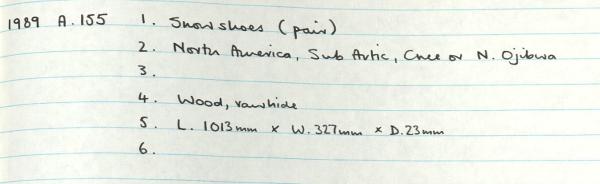 1989 A.155 1. Snowshoes (pair)
2. North America, Sub Artic, Cree or N. Ojibwa
3.
4. Wood, rawhide
5. L. 1013mm x W. 327mm x D. 23mm
6.